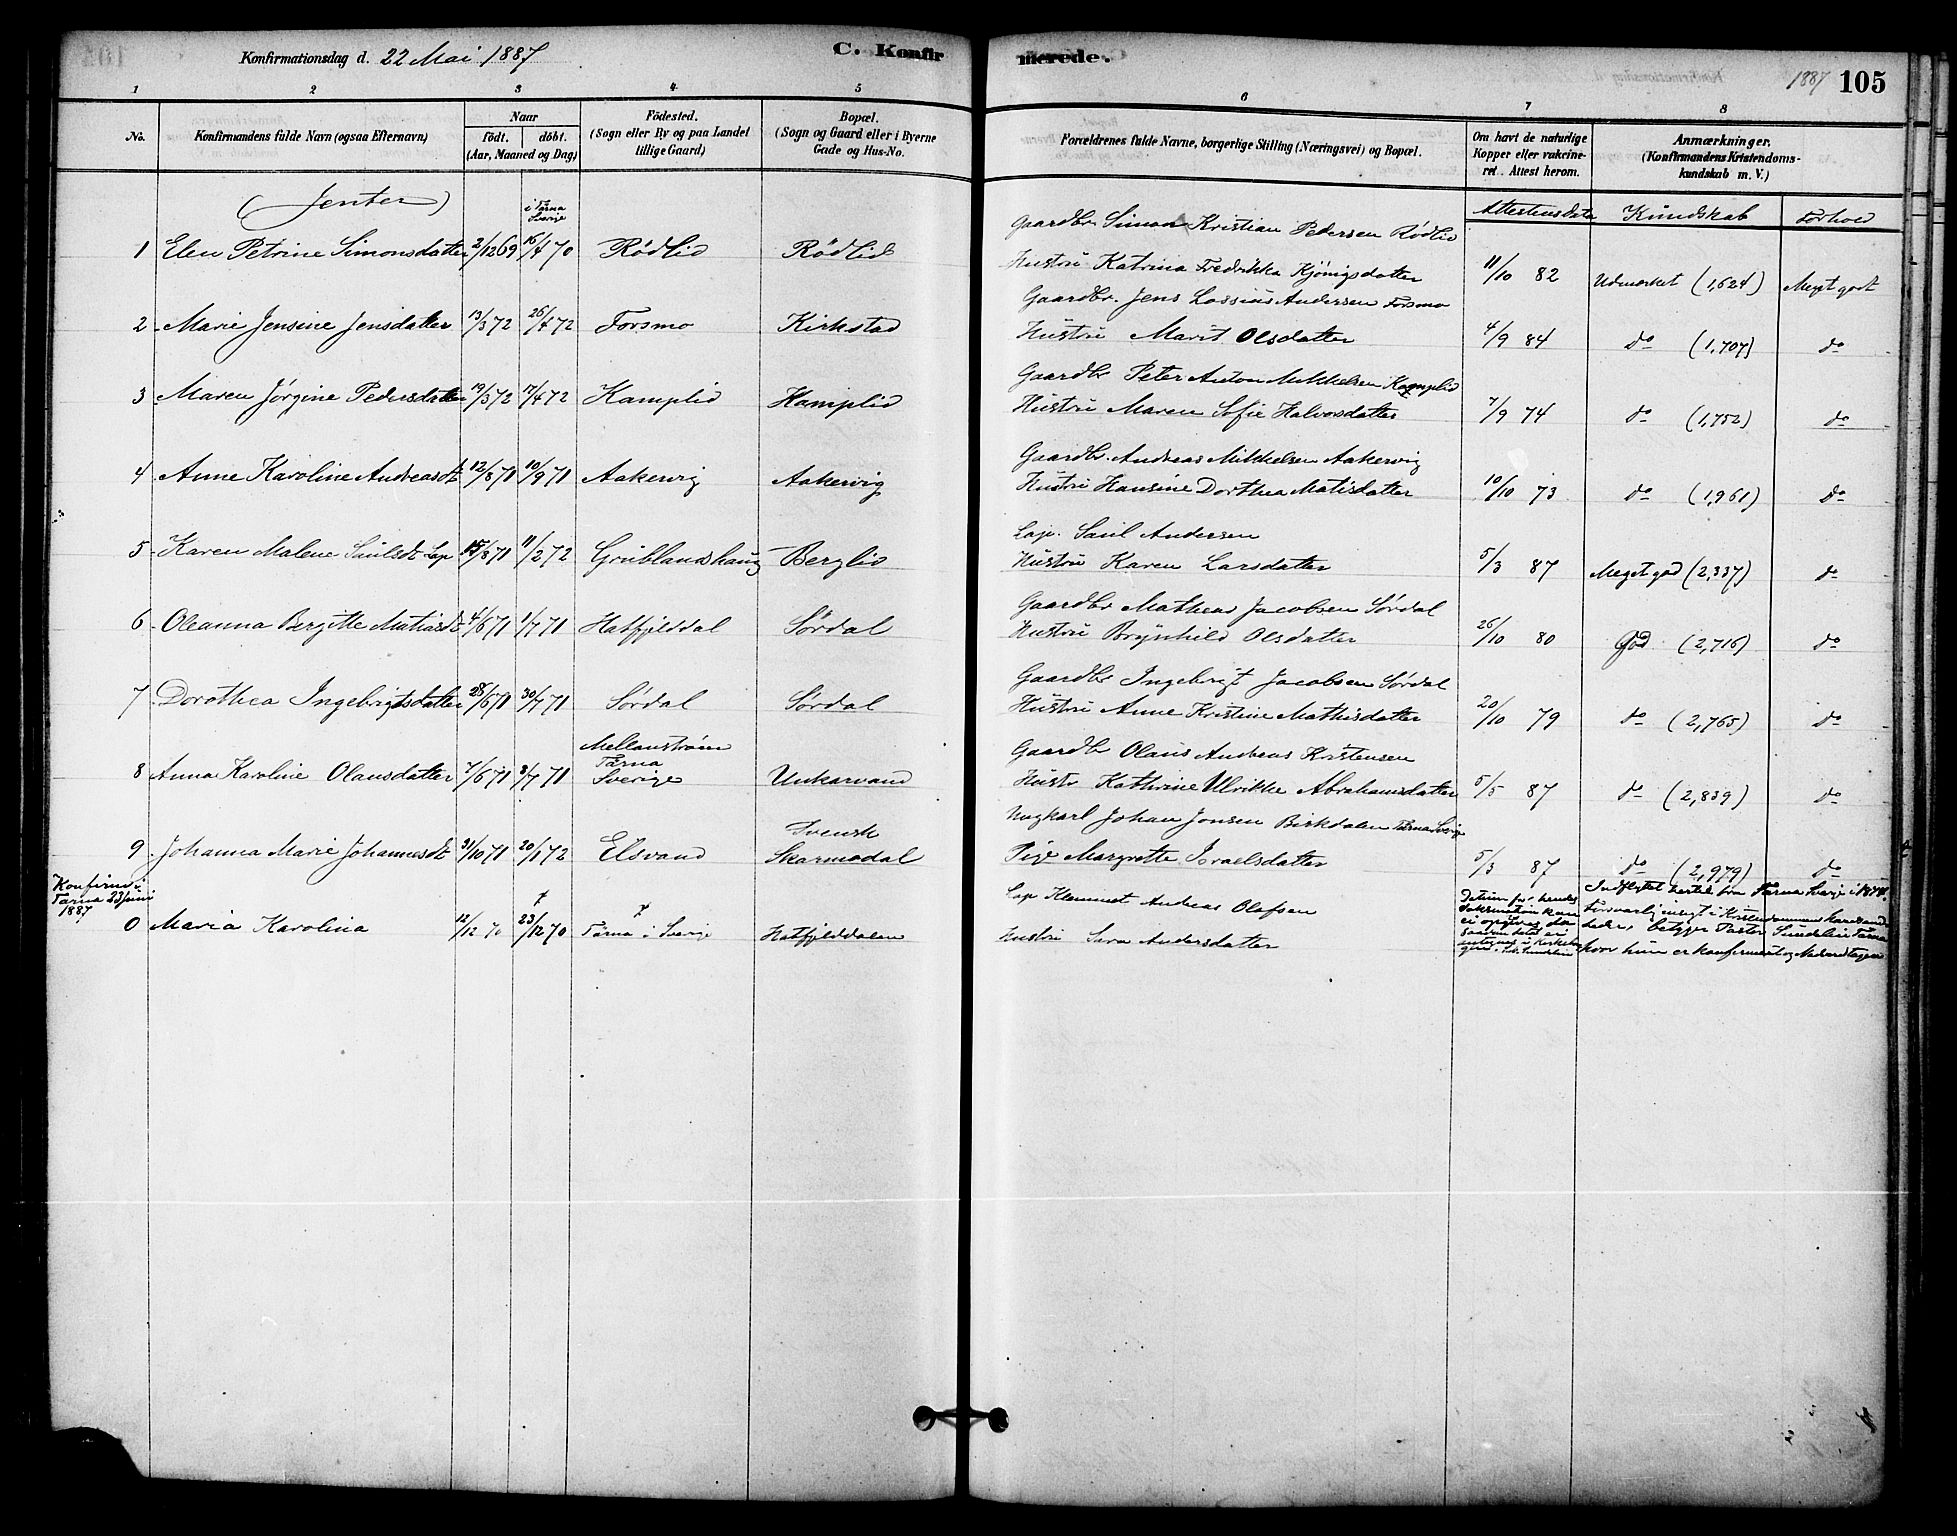 Konfirmationsdag d. 22 Mai 1887
C. Konfirmerede.
1887 105
1 2 3 4 5 6 7 8
No.
Konfirmandens fulde Navn (ogsaa Efternavn)
Naar
födt. döbt.
(Aar, Maaned og Dag)
Födested.
(Sogn eller By og paa Landet
tillige Gaard)
Bopæl.
(Sogn og Gaard eller i Byerne
Gade og Hus-No.
Forældrenes fulde Navne, borgerlige Stilling (Næringsvei) og Bopæl.
Om havt de naturlige
Kopper eller vakcine-
ret. Attest herom.
Anmærkninger.
(Konfirmandens Kristendoms-
kundskab m. V.)
(Jenter)
i Tärna
Sverige
Attestens dato Kundskab Forhold
Gaardbr Simon Kristian Pedersen Rødlid
1 Elen Petrine Simonsdatter 2/12 69 16/4 70 Rødlid Rødlid
Hustru Katrina Fredrikka Kjönigsdatter 11/10 82 Udmærket (1,624) Meget godt
Gaardbr. Jens Lossius Andersen Forsmo
2 Marie Jensine Jensdatter 13/3 72 26/4 72 Forsmo Kirkstad
Hustru Marit Olsdatter 4/9 84 do (1,707) do
Gaardbr Peter Anton Mikkelsen Kamplid
3 Maren Jørgine Pedersdatter 19/3 72 17/4 72 Kamplid Kamplid
Hustru Maren Sofie Halvorsdatter 7/9 74 do (1,752) do
Gaardbr. Andreas Mikkelsen Aakervig
4 Anne Karoline Andreasdt 12/8 71 10/9 71 Aakervig Aakervig
Hustru Hansine Dorthea Matisdatter 10/10 73 do (1,961) do
Lap. Saul Andersen
5 Karen Malene Saulsdt Lap 15/8 71 11/2 72 Grublandshaug Berglid
Hustru Karen Larsdatter 5/3 87 Meget god (2,337) do
Gaardbr Mathias Jacobsen Sørdal
6 Oleanna Bergitte Matiasdt 4/6 71 1/7 71 Hatfjelddal Sørdal
Hustru Brynhild Olsdatter 26/10 80 God (2,716) do
Gaardbr Ingebrigt Jacobsen Sørdal
7 Dorothea Ingebrigtsdatter 28/6 71 30/7 71 Sørdal Sørdal
Hustru Anne Kristine Mathisdatter 20/10 79 do (2,765) do
Mellanstrøm
Tärna
Gaardbr Olaus Andreas Kristensen
8 Anna Karoline Olausdatter 7/6 71 3/7 71 Sverige Unkarvand
Hustr Kathrine Ulrikke Abrahamsdatter 5/5 87 do (2,839) do
Ungkarl Johan Jonsen Birkdalen Tärna Sverige
Svensk
9 Johanna Marie Johannesdt 31/10 71 20/1 72 Elsvand Skarmodal
Pige Margrette Israelsdatter 5/3 87 do (2,979) do
Konfirm. i
Tärna 23 juni
1887
Lap Klemmet Andreas Olafsen
0 Maria Karolina 12/12 70 23/12 70 Tärna i Sverige Hatfjelddalen
Hustru Sara Andersdatter
Datum for hendes
vakcination kan
ei opgives da
saadan dato ei
antegnes i Kirkebo-
gen
Indflyttet hertil fra Tärna Sverige i
Forsvarlig insigt i Kristendommens
betyger Pastor Sundelin Tärna
hvor hun er konfirmeret og Nadverdtagen